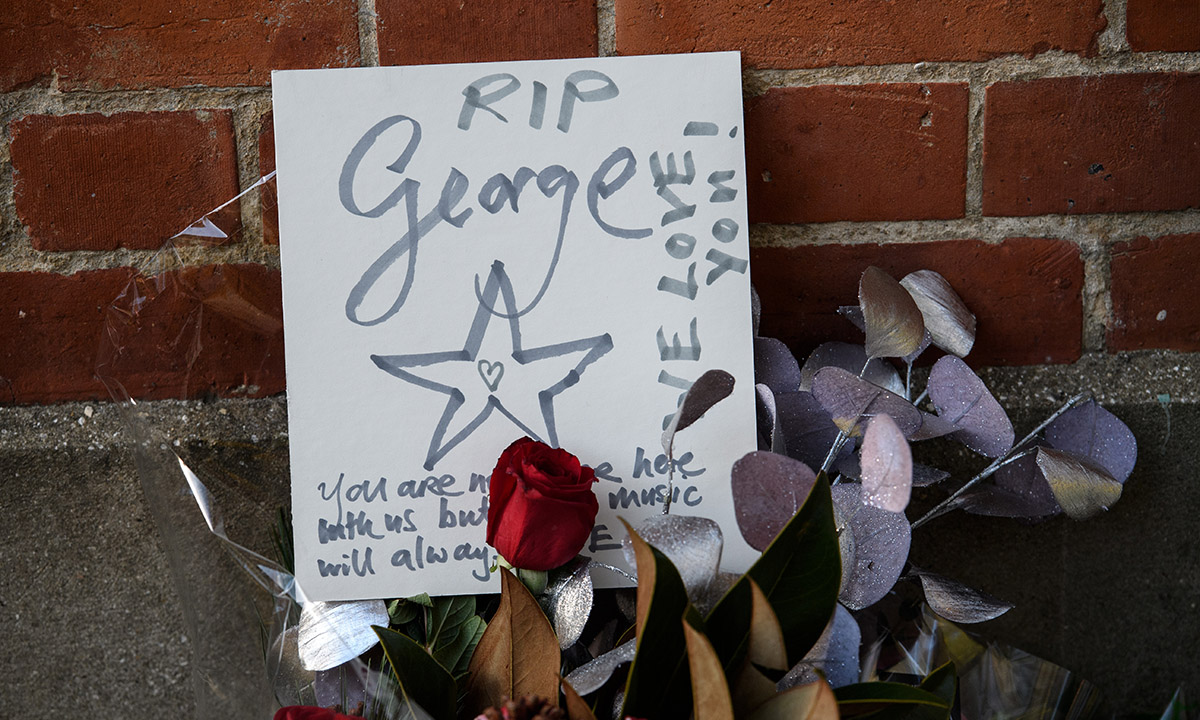 RIP
George
WE LOVE
YOU!
You are here
with us but music
will always